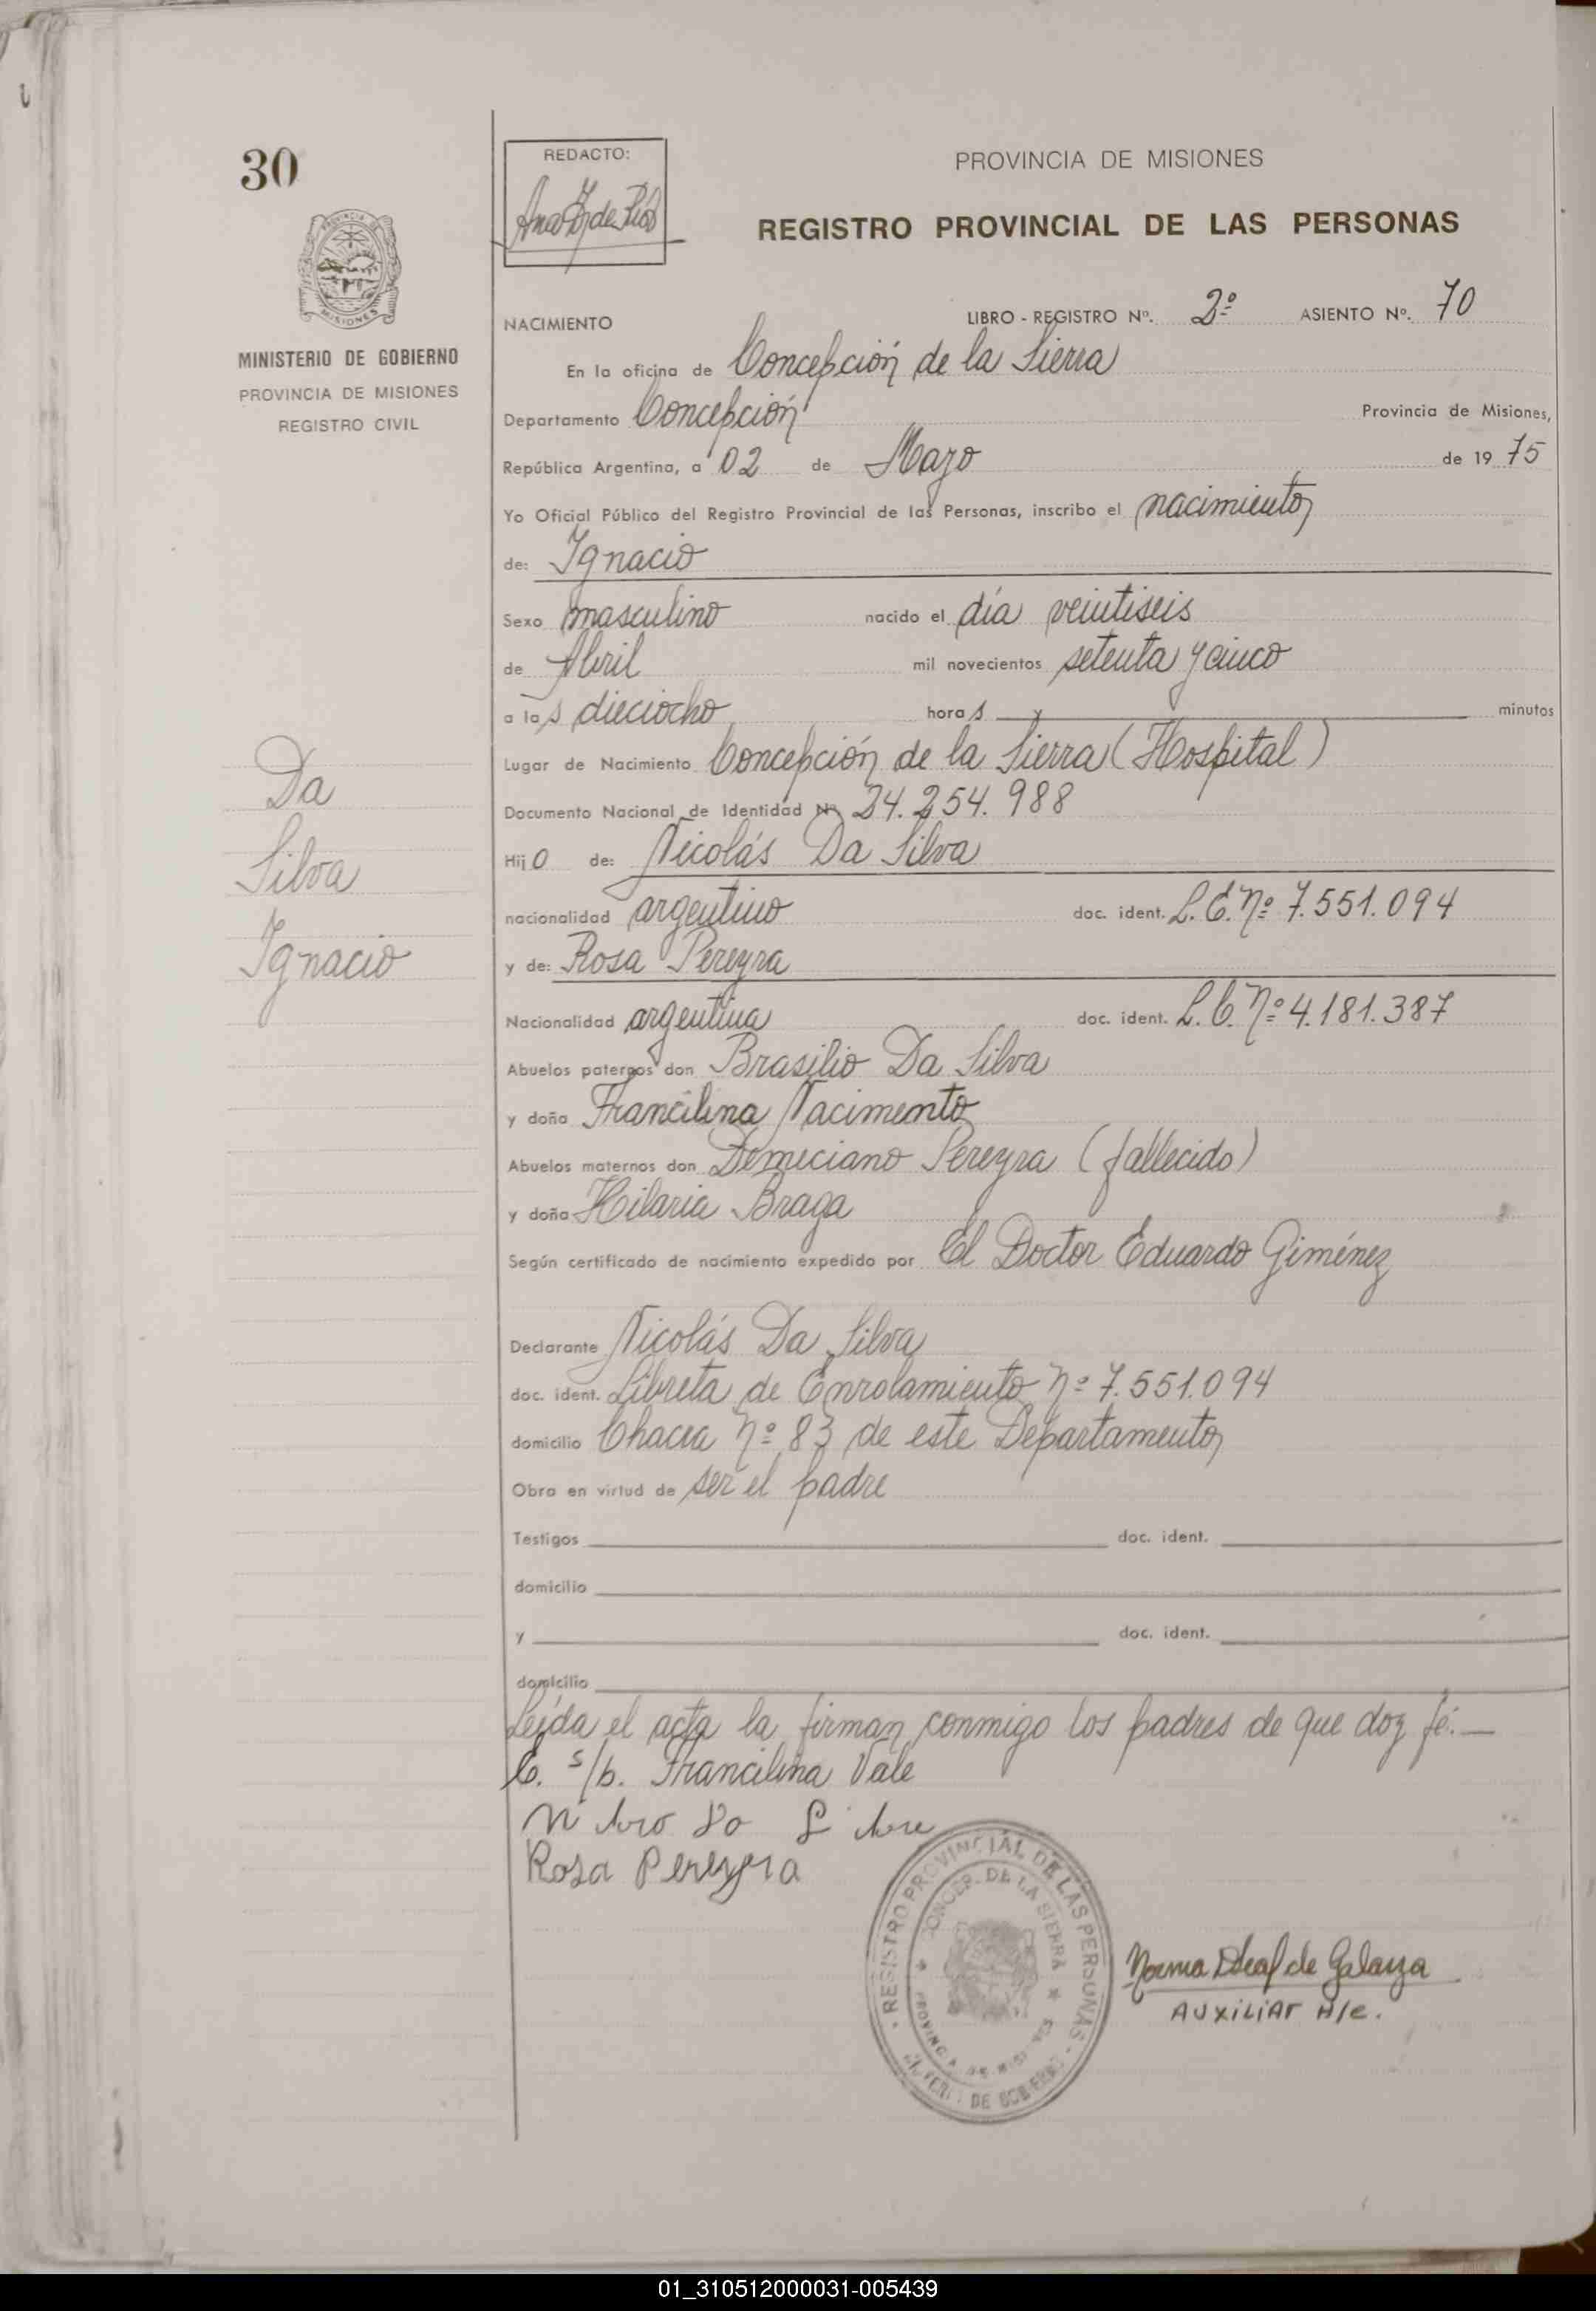 30
REDACTO:
PROVINCIA DE MISIONES
REGISTRO PROVINCIAL DE LAS PERSONAS
PROVINCIA
MISIONES
MINISTERIO DE GOBIERNO
PROVINCIA DE MISIONES
REGISTRO CIVIL
NACIMIENTO LIBRO - REGISTRO Nº. 2º ASIENTO Nº. 70
En la oficina de Concepción de la Sierra
Departamento Concepción Provincia de Misiones,
República Argentina, a 02 de Mayo de 1975
Yo Oficial Público del Registro Provincial de las Personas, inscribo el nacimiento
de: Ignacio
Sexo masculino nacido el día veintiseis
de Abril mil novecientos setenta y cinco
a las dieciocho horas y minutos
Lugar de Nacimiento Concepción de la Sierra (Hospital)
Documento Nacional de Identidad Nº 24.254.988
Hijo de: Nicolás Da Silva
nacionalidad argentino doc. ident. L.E. Nº 7.551.094
y de: Rosa Pereyra
Nacionalidad argentina doc. ident. L.C. Nº 4.181.387
Abuelos paternos don Brasilio Da Silva
y doña Francilina Nacimento
Abuelos maternos don Demeciano Pereyra (fallecido)
y doña Hilaria Braga
Según certificado de nacimiento expedido por El Doctor Eduardo Giménez
Declarante Nicolás Da Silva
doc. ident. Libreta de Enrolamiento Nº 7.551.094
domicilio Chacra Nº 83 de este Departamento
Obra en virtud de ser el padre
Testigos doc. ident.
domicilio
y doc. ident.
domicilio
Leída el acta la firman conmigo los padres de que doy fé.—
E. s/b. Francilina Vale
Rosa Pereyra
Da
Silva
Ignacio
REGISTRO PROVINCIAL DE LAS PERSONAS
CONCEP. DE LA SIERRA
Norma de Galarza
AUXILIAR A/C.
01_310512000031-005439